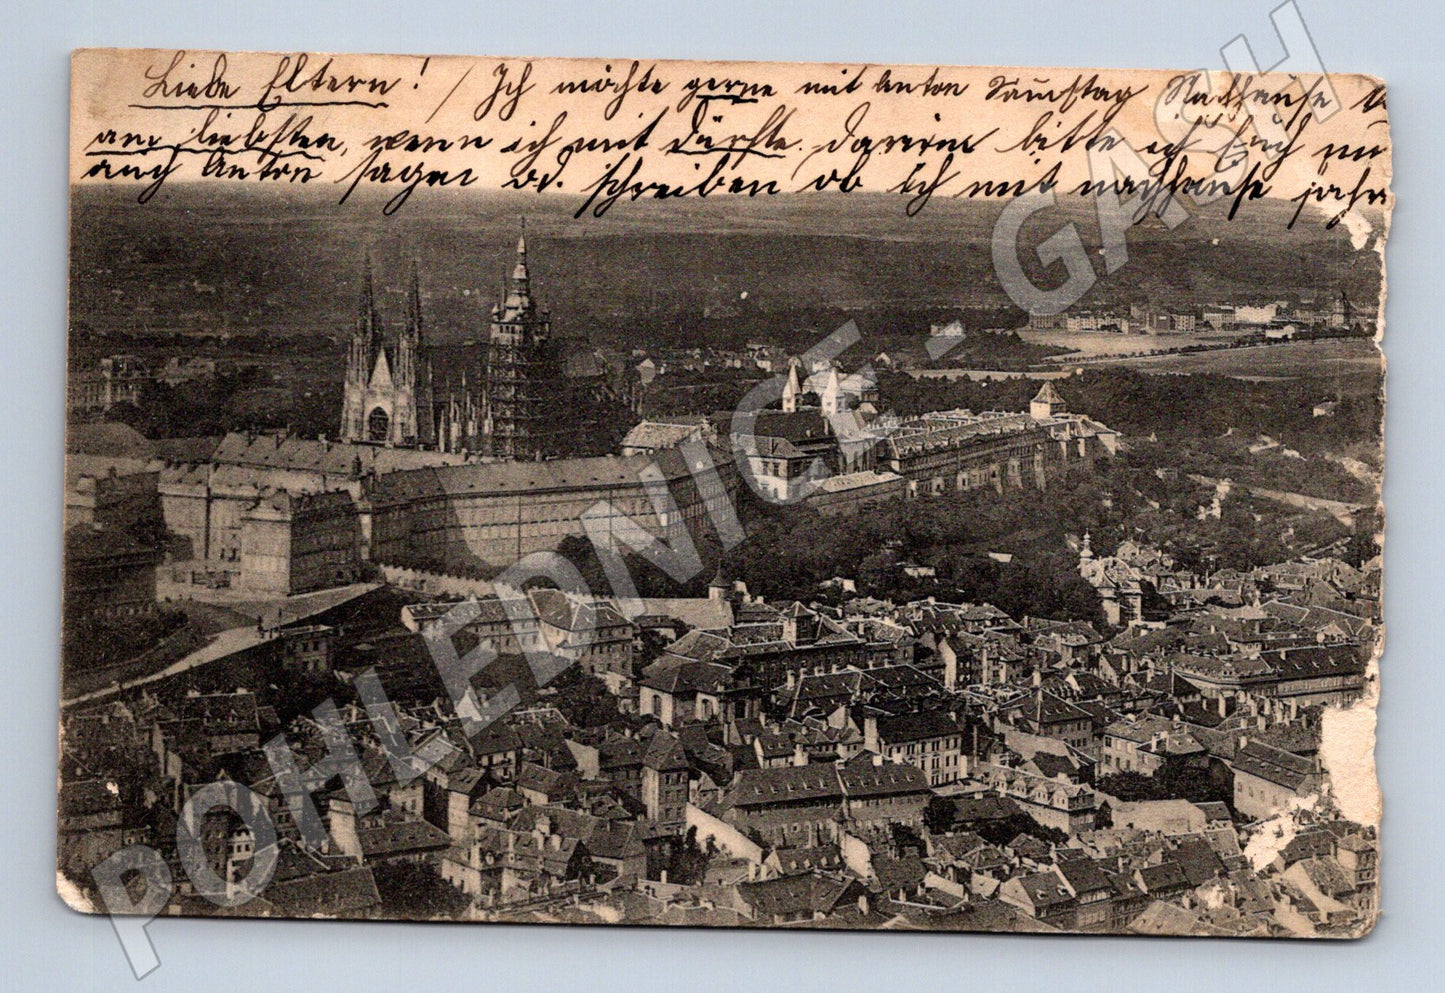 Liebe Eltern! / Ich möchte gerne mit Anton Samstag Nachhause
am liebsten, wenn ich mit dürfte. Darum bitte ich Euch
auch Anton sagen od. schreiben ob ich mit nachhause
POHLEDNICE - GASH